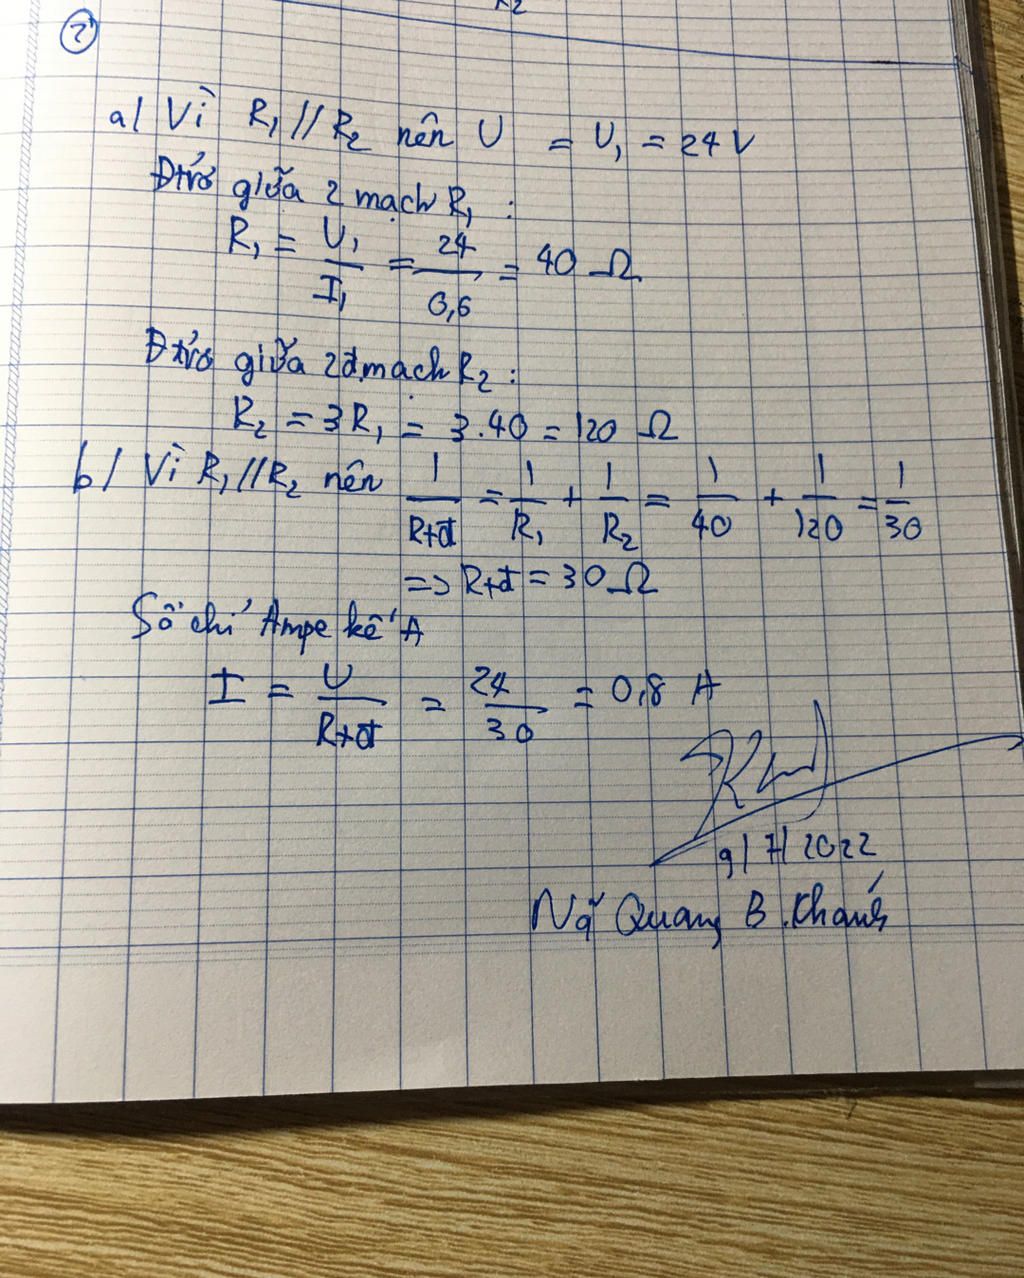 R2
2
a/ Vì R1 // R2 nên U = U1 = 24 V
Đtrở giữa 2 mạch R1 :
R1 = U1/I1 = 24/0,6 = 40 Ω
Đtrở giữa 2đ mạch R2 :
R2 = 3R1 = 3.40 = 120 Ω
b/ Vì R1 // R2 nên 1/Rtđ = 1/R1 + 1/R2 = 1/40 + 1/120 = 1/30
=> Rtđ = 30 Ω
Số chỉ Ampe kế A
I = U/Rtđ = 24/30 = 0,8 A
9/7/2022
Quang B. Khánh